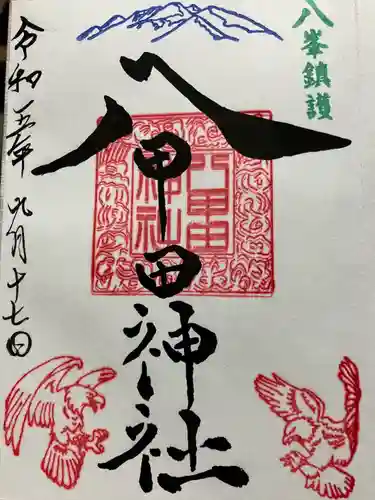 八峯鎮護
八甲田神社
八甲田
神社
令和五年九月十七日